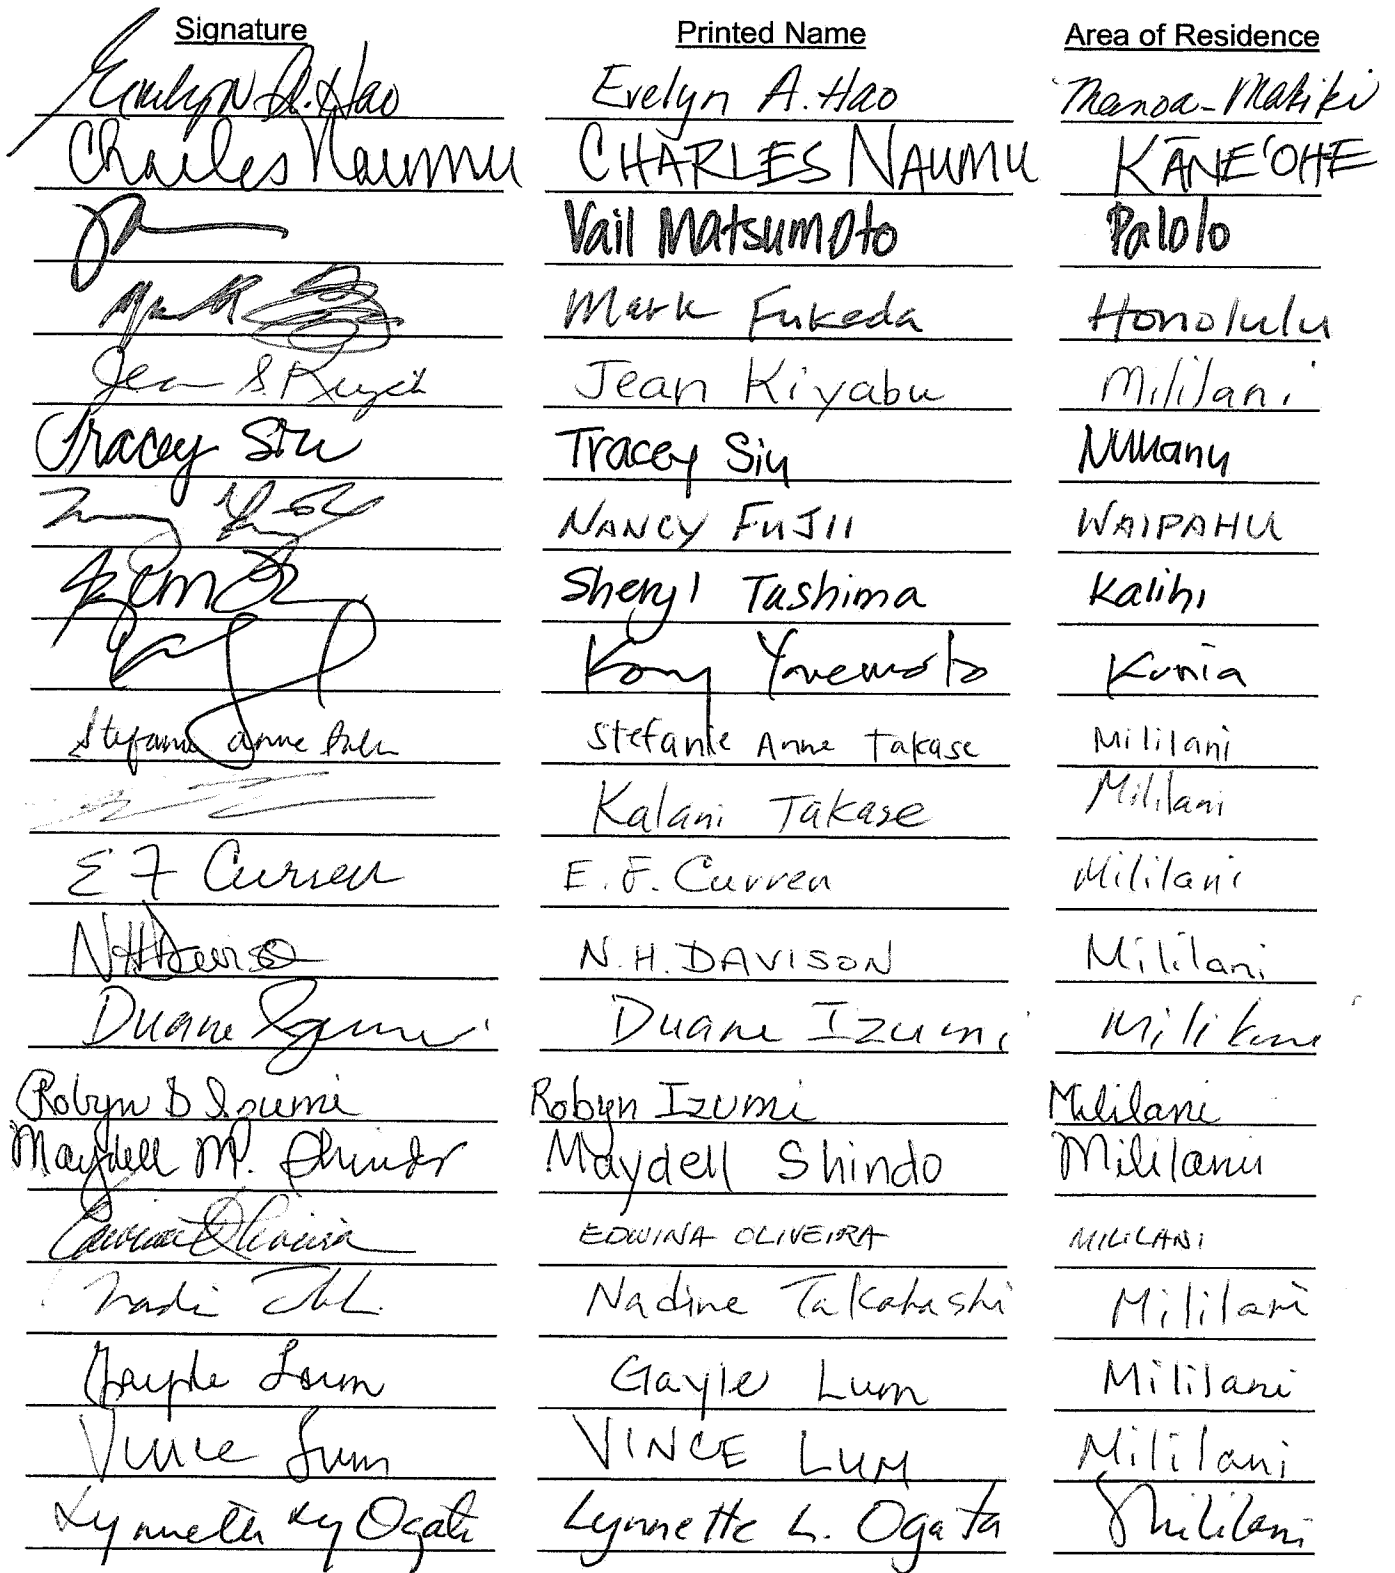 Signature Printed Name Area of Residence
Evelyn A. Hao Evelyn A. Hao Manoa-Makiki
Charles Naumu CHARLES NAUMU KĀNE'OHE
Vail Matsumoto Palolo
Mark Fukeda Honolulu
Jean S. Jean Kiyabu Mililani
Tracey Siu Tracey Siu Nuuanu
Nancy NANCY FUJII WAIPAHU
Sheryl Tashima Kalihi
Kory Yonemoto Kunia
Stefanie Anne Stefanie Anne Takase Mililani
Kalani Takase Mililani
E F Curren E. F. Curren Mililani
NHDavison N.H. DAVISON Mililani
Duane Izumi Duane Izumi Mililani
Robyn D Izumi Robyn Izumi Mililani
Maydell M. Shindo Maydell Shindo Mililani
Edwina Oliveira EDWINA OLIVEIRA MILILANI
Nadine Takahashi Mililani
Gayle Lum Gayle Lum Mililani
Vince Lum VINCE LUM Mililani
Lynnette Ogata Lynnette L. Ogata Mililani